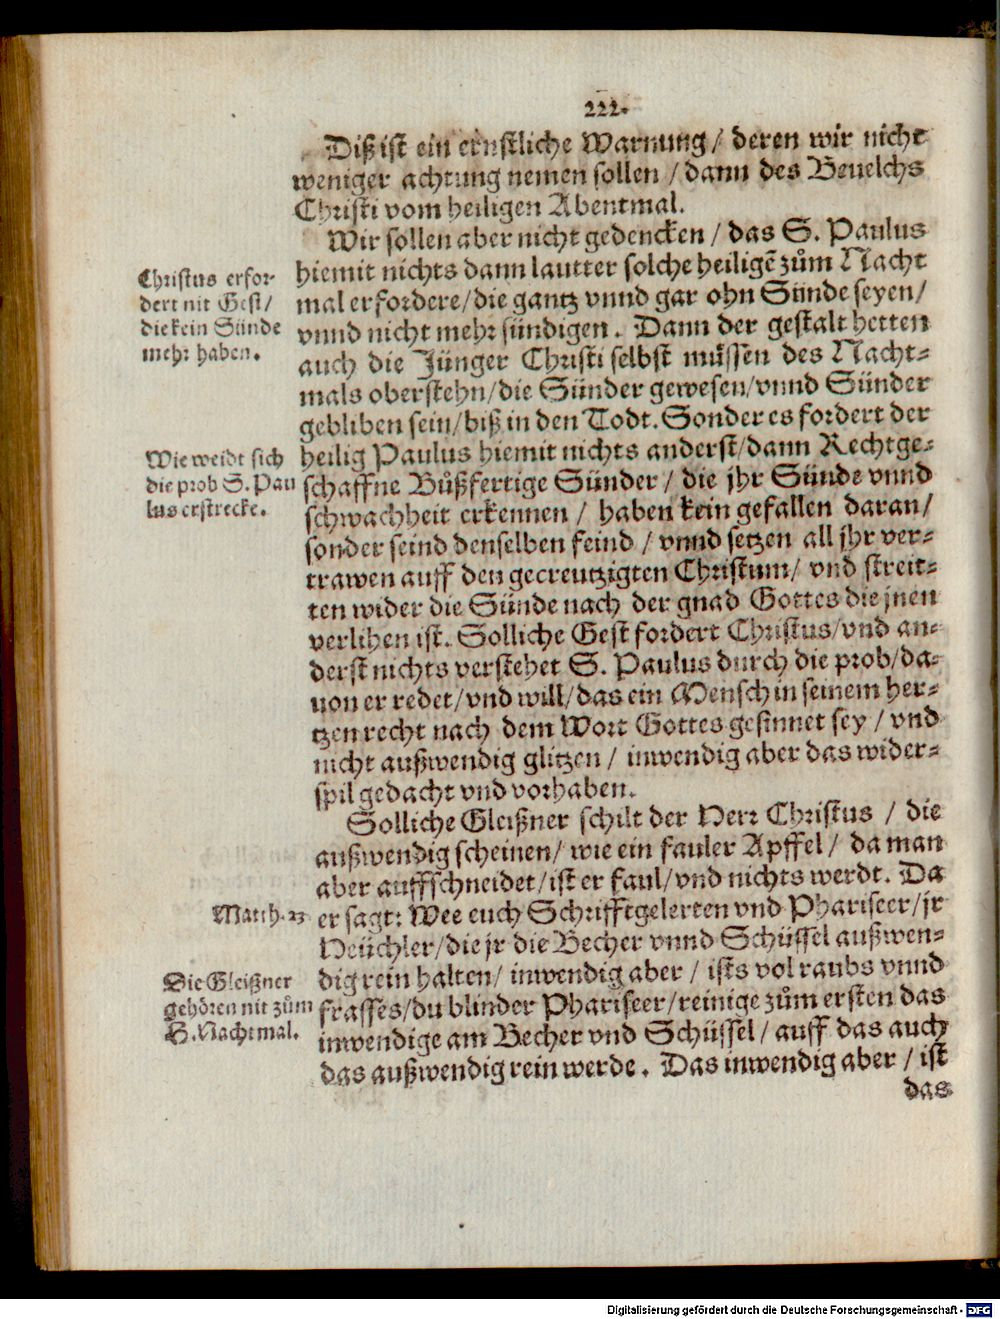 222.
Diß ist ein ernstliche Warnung / deren wir nicht
weniger achtung nemen sollen / dann des Beuelchs
Christi vom heiligen Abentmal.
Wir sollen aber nicht gedencken / das S. Paulus
hiemit nichts dann lautter solche heiligẽ zům Nacht
mal erfordere / die gantz vnnd gar ohn Sünde seyen /
vnnd nicht mehr sündigen. Dann der gestalt hetten
auch die Jünger Christi selbst müssen des Nacht-
mals oberstehn / die Sünder gewesen / vnnd Sünder
gebliben sein / biß in den Todt. Sonder es fordert der
heilig Paulus hiemit nichts anderst / dann Rechtge-
schaffne Bůßfertige Sünder / die jhr Sünde vnnd
schwachheit erkennen / haben kein gefallen daran /
sonder seind denselben feind / vnnd setzen all jhr ver-
trawen auff den gecreutzigten Christum / vnd streit-
ten wider die Sünde nach der gnad Gottes die jnen
verlihen ist. Solliche Gest fordert Christus / vnd an-
derst nichts verstehet S. Paulus durch die prob / da-
uon er redet / vnd will / das ein Mensch in seinem her-
tzen recht nach dem Wort Gottes gesinnet sey / vnd
nicht außwendig glitzen / inwendig aber das wider-
spil gedacht vnd vorhaben.
Solliche Gleißner schilt der Herr Christus / die
außwendig scheinen / wie ein fauler Apffel / da man
aber auffschneidet / ist er faul / vnd nichts werdt. Da
er sagt: Wee euch Schrifftgelerten vnd Phariseer / jr
Heüchler / die jr die Becher vnnd Schüssel außwen-
dig rein halten / inwendig aber / ists vol raubs vnnd
frasses / du blinder Phariseer / reinige zům ersten das
inwendige am Becher vnd Schüssel / auff das auch
das außwendig rein werde. Das inwendig aber / ist
das
Christus erfor-
dert nit Gest /
die kein Sünde
mehr haben.
Wie weidt sich
die prob S. Pau
lus erstrecke.
Matth. 23
Die Gleißner
gehören nit zům
H. Nachtmal.
Digitalisierung gefördert durch die Deutsche Forschungsgemeinschaft - DFG